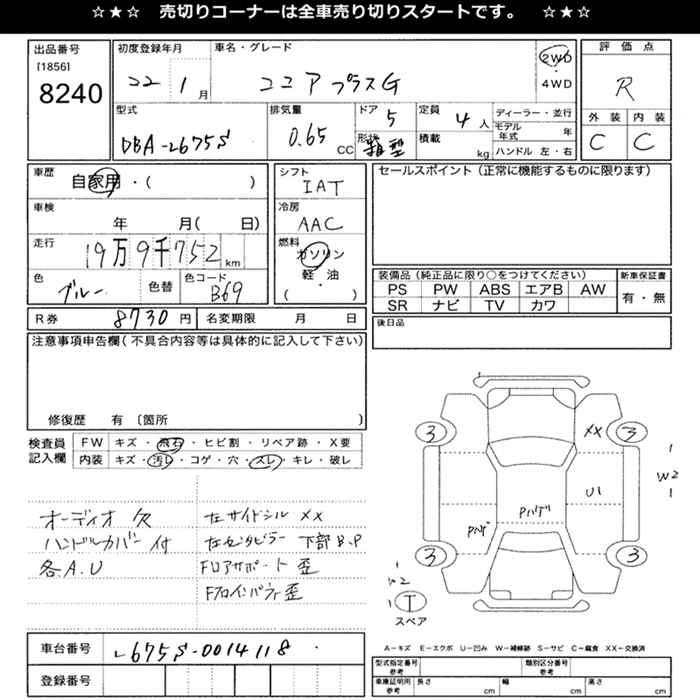 ☆★☆ 売切りコーナーは全車売り切りスタートです。 ☆★☆
出品番号
[1856]
8240
初度登録年月
22 1月
車名・グレード
ココアプラスG
2WD
4WD
評価点
R
外装 内装
C C
型式
DBA-L675S
排気量
0.65 CC
ドア
5
形状
箱型
定員
4人
積載
kg
ディーラー・並行
モデル年式 年
ハンドル 左・右
車歴
自家用・( )
車検
年 月( 日)
走行
19万9千752 km
色
ブルー
色替
色コード
B69
シフト
IAT
冷房
AAC
燃料
ガソリン
軽・油
( )
セールスポイント(正常に機能するものに限ります)
装備品(純正品に限り○をつけてください)
PS PW ABS エアB AW
SR ナビ TV カワ
新車保証書
有・無
R券 8730円
名変期限 月 日
後日品
注意事項申告欄(不具合内容等は具体的に記入して下さい)
修復歴 有 〔箇所 〕
検査員記入欄
FW キズ・飛石・ヒビ割・リペア跡・X要
内装 キズ・汚レ・コゲ・穴・スレ・キレ・破レ
オーディオ欠
ハンドルカバー付
各A.U
左サイドシル XX
下部 B.P
Fロアサポート 歪
Fフロインパネ歪
3 XX 3
W2
U1
Pハゲ
Pハゲ
3 3
W2
T
スペア
A-キズ E-エクボ U-凹み W-補修跡 S-サビ C-腐食 XX-交換済
車台番号 L675S-0014118
登録番号
型式指定番号 参考
類別区分番号 参考
車庫証明 参考 長さ cm 幅 cm 高さ cm